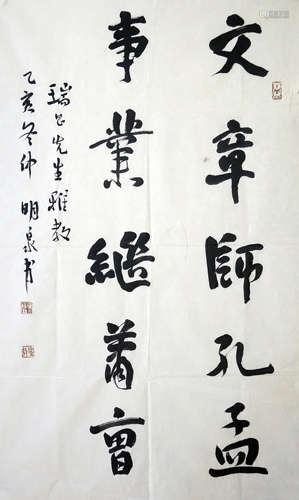 文章師孔孟
事業繼蕭曹
瑞昌先生雅教
乙亥冬仲明泉書